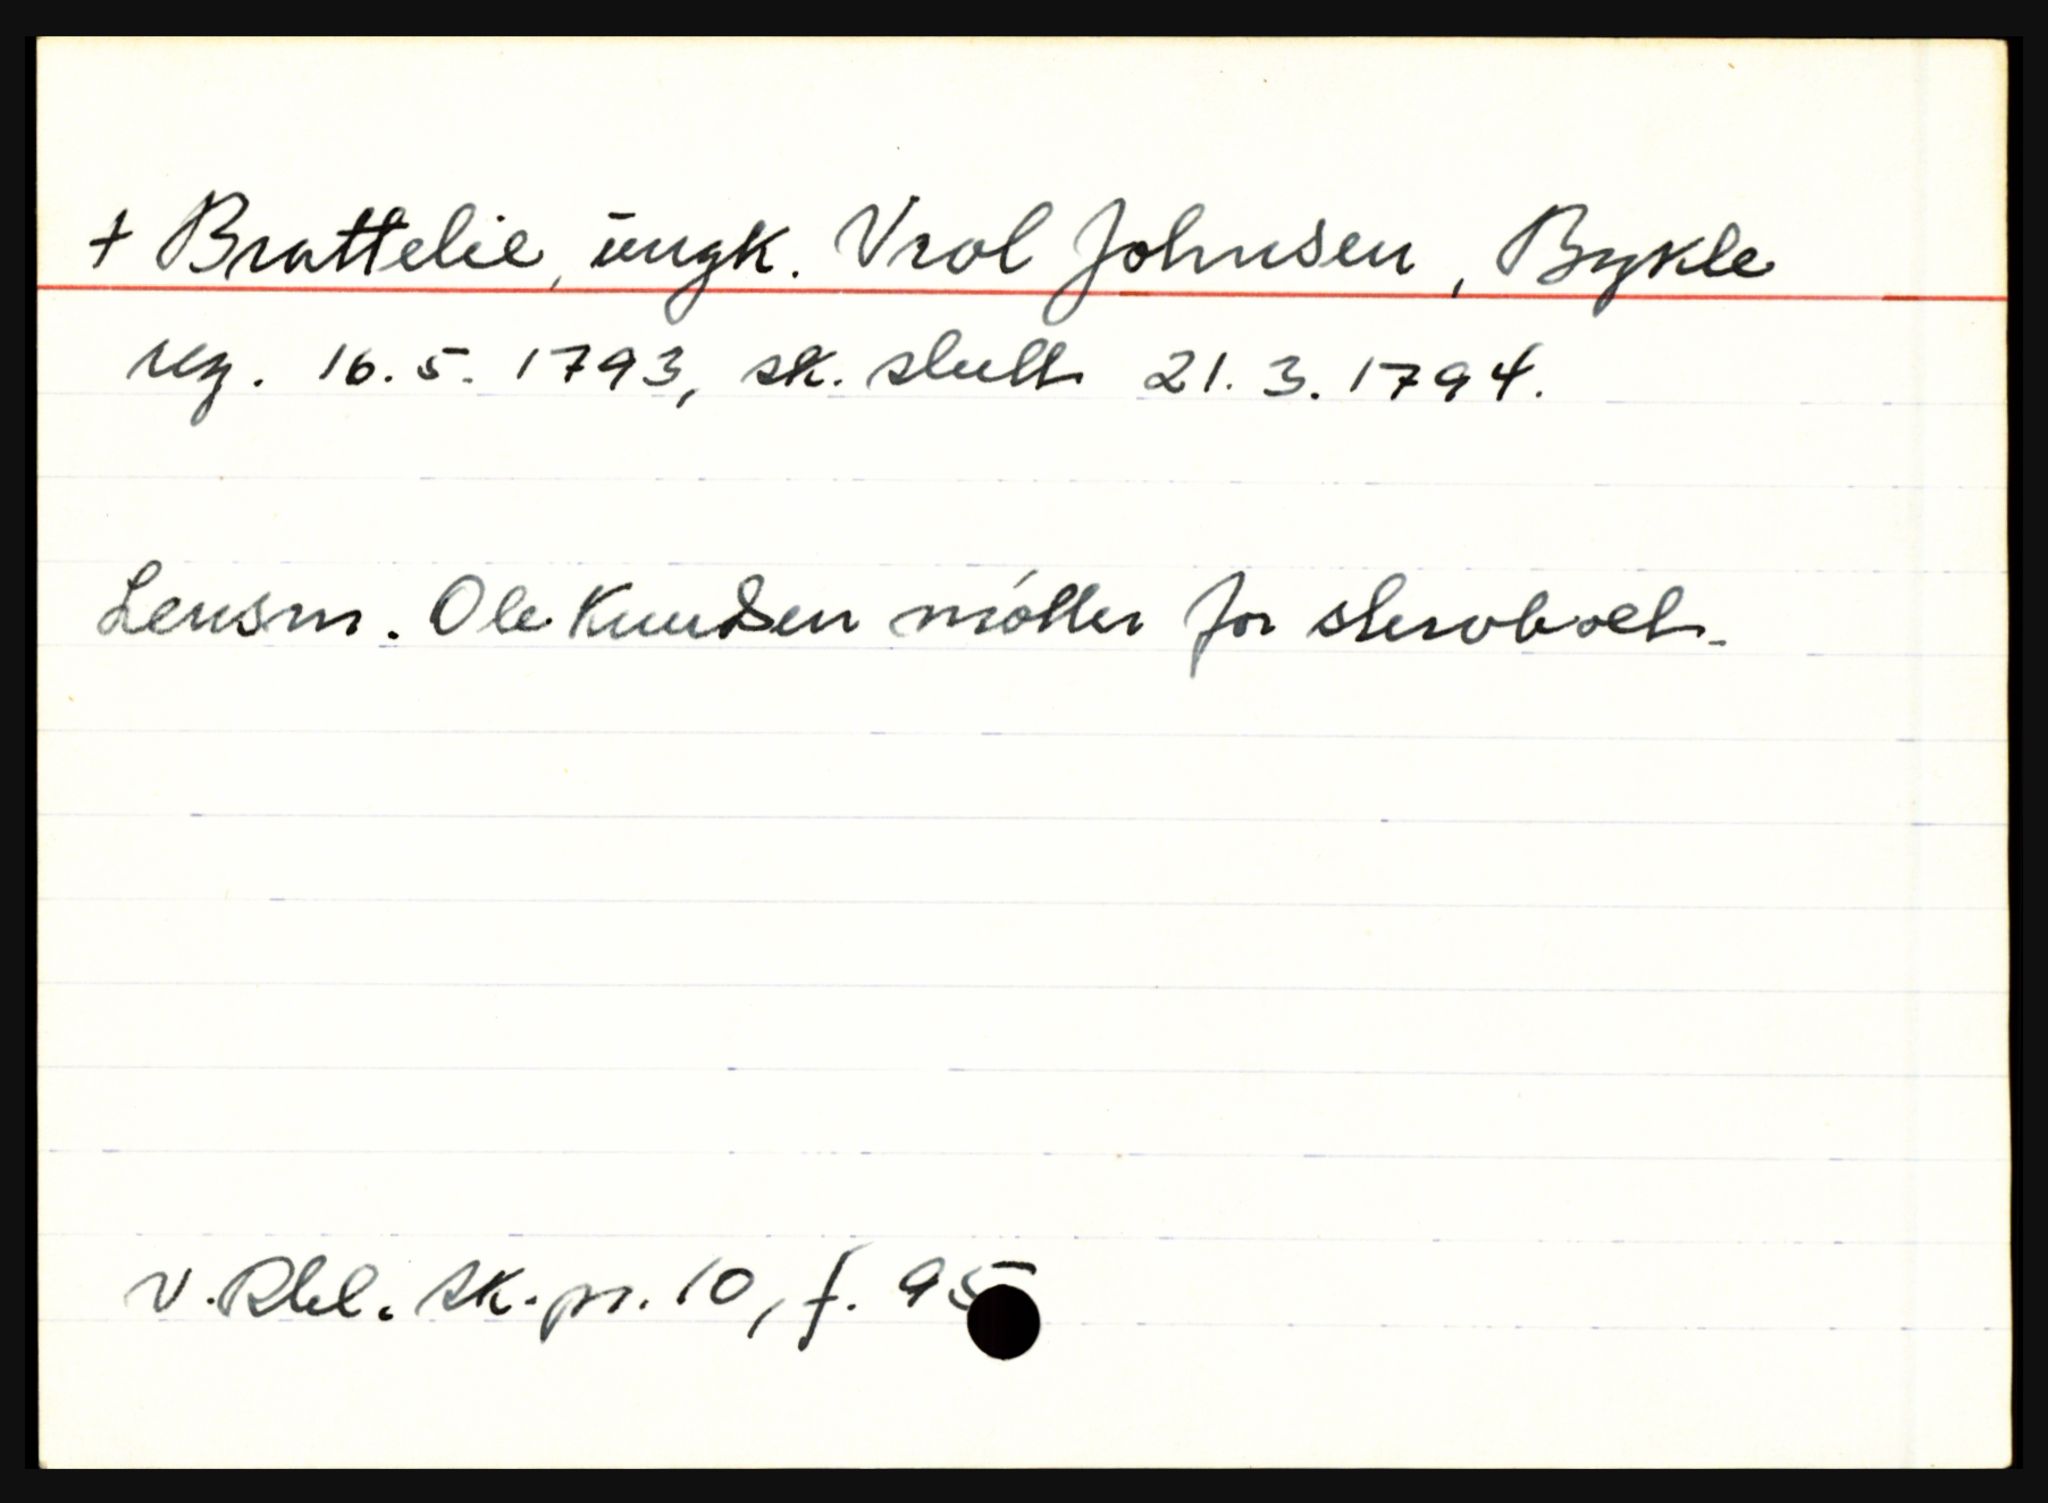 + Brattelie, ungk. Vrol Johnsen, Bykle
reg. 16.5. 1793, sk. slutt 21.3.1794.
Lensm. Ole Knudsen møtter for stervboet.
v. Rbl. sk. pr. 10, f. 95